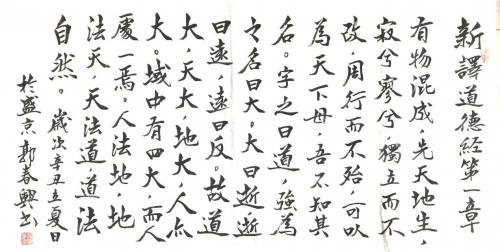 新譯道德經第一章
有物混成,先天地生
寂兮廖兮,獨立而不
改,周行而不殆,可以
為天下母,吾不知其
名。字之曰道,強為
之名曰大。大曰逝,逝
曰遠,遠曰反。故道
大,天大,地大,人亦
大。域中有四大,而人
處一焉。人法地,地
法天,天法道,道法
自然。歲次辛丑立夏日
於盛京郭春興书